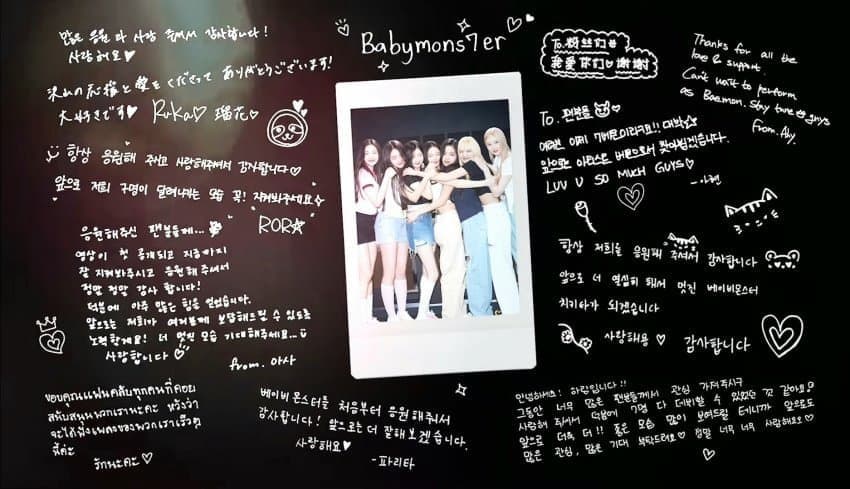 많은 응원과 사랑 주셔서 감사합니다!
사랑해요♡
沢山の応援と愛をくださって ありがとうございます!
大好きです♡ Ruka♡ 瑠花♡
항상 응원해 주시고 사랑해주셔서 감사합니다♡
앞으로 저희 7명이 달려나가는 모습 꼭! 지켜봐주세요
RORA
응원해주신 팬분들께...
영상이 첫 공개되고 지금까지
잘 지켜봐주시고 응원해 주셔서
정말 정말 감사합니다!
덕분에 아주 많은 힘을 얻었습니다.
앞으로는 저희가 여러분께 보답해드릴 수 있도록
노력할게요! 더 멋진 모습 기대해주세요...
사랑합니다♡
from. 아사
ขอบคุณแฟนคลับทุกคนที่คอย
สนับสนุนพวกเรานะคะ หวังว่า
จะได้ฟังเพลงของพวกเราเร็วๆ
นี้ค่ะ
รักนะคะ♡
Babymons7er
베이비몬스터를 처음부터 응원해줘서
감사합니다! 앞으로는 더 잘해보겠습니다.
사랑해요♡
-파리타
To. 粉丝们
我爱你们♡谢谢
Thanks for all the
love & support.
Can't wait to perform
as Baemon. Stay tune guys
From. Ahy.
To. 팬분들 ♡
여러분 이제 7몬스터라구요!! 대박
앞으로 아티스트 로서 찾아뵙겠습니다.
LUV U SO MUCH GUYS♡
-아현
항상 저희를 응원해 주셔서 감사합니다
앞으로 더 열심히 해서 멋진 베이비몬스터
치키타가 되겠습니다
사랑해용♡ 감사합니다
안녕하세요! 하람입니다!!
그동안 너무 많은 팬분들께서 관심 가져주시구
사랑해 주셔서 덕분에 7명 다 데뷔할 수 있었던 것 같아요♡
앞으로 더욱 더!! 좋은 모습 많이 보여드릴 테니까 앞으로도
많은 관심, 많은 기대 부탁드려요♡ 정말 너무 너무 사랑해요♡